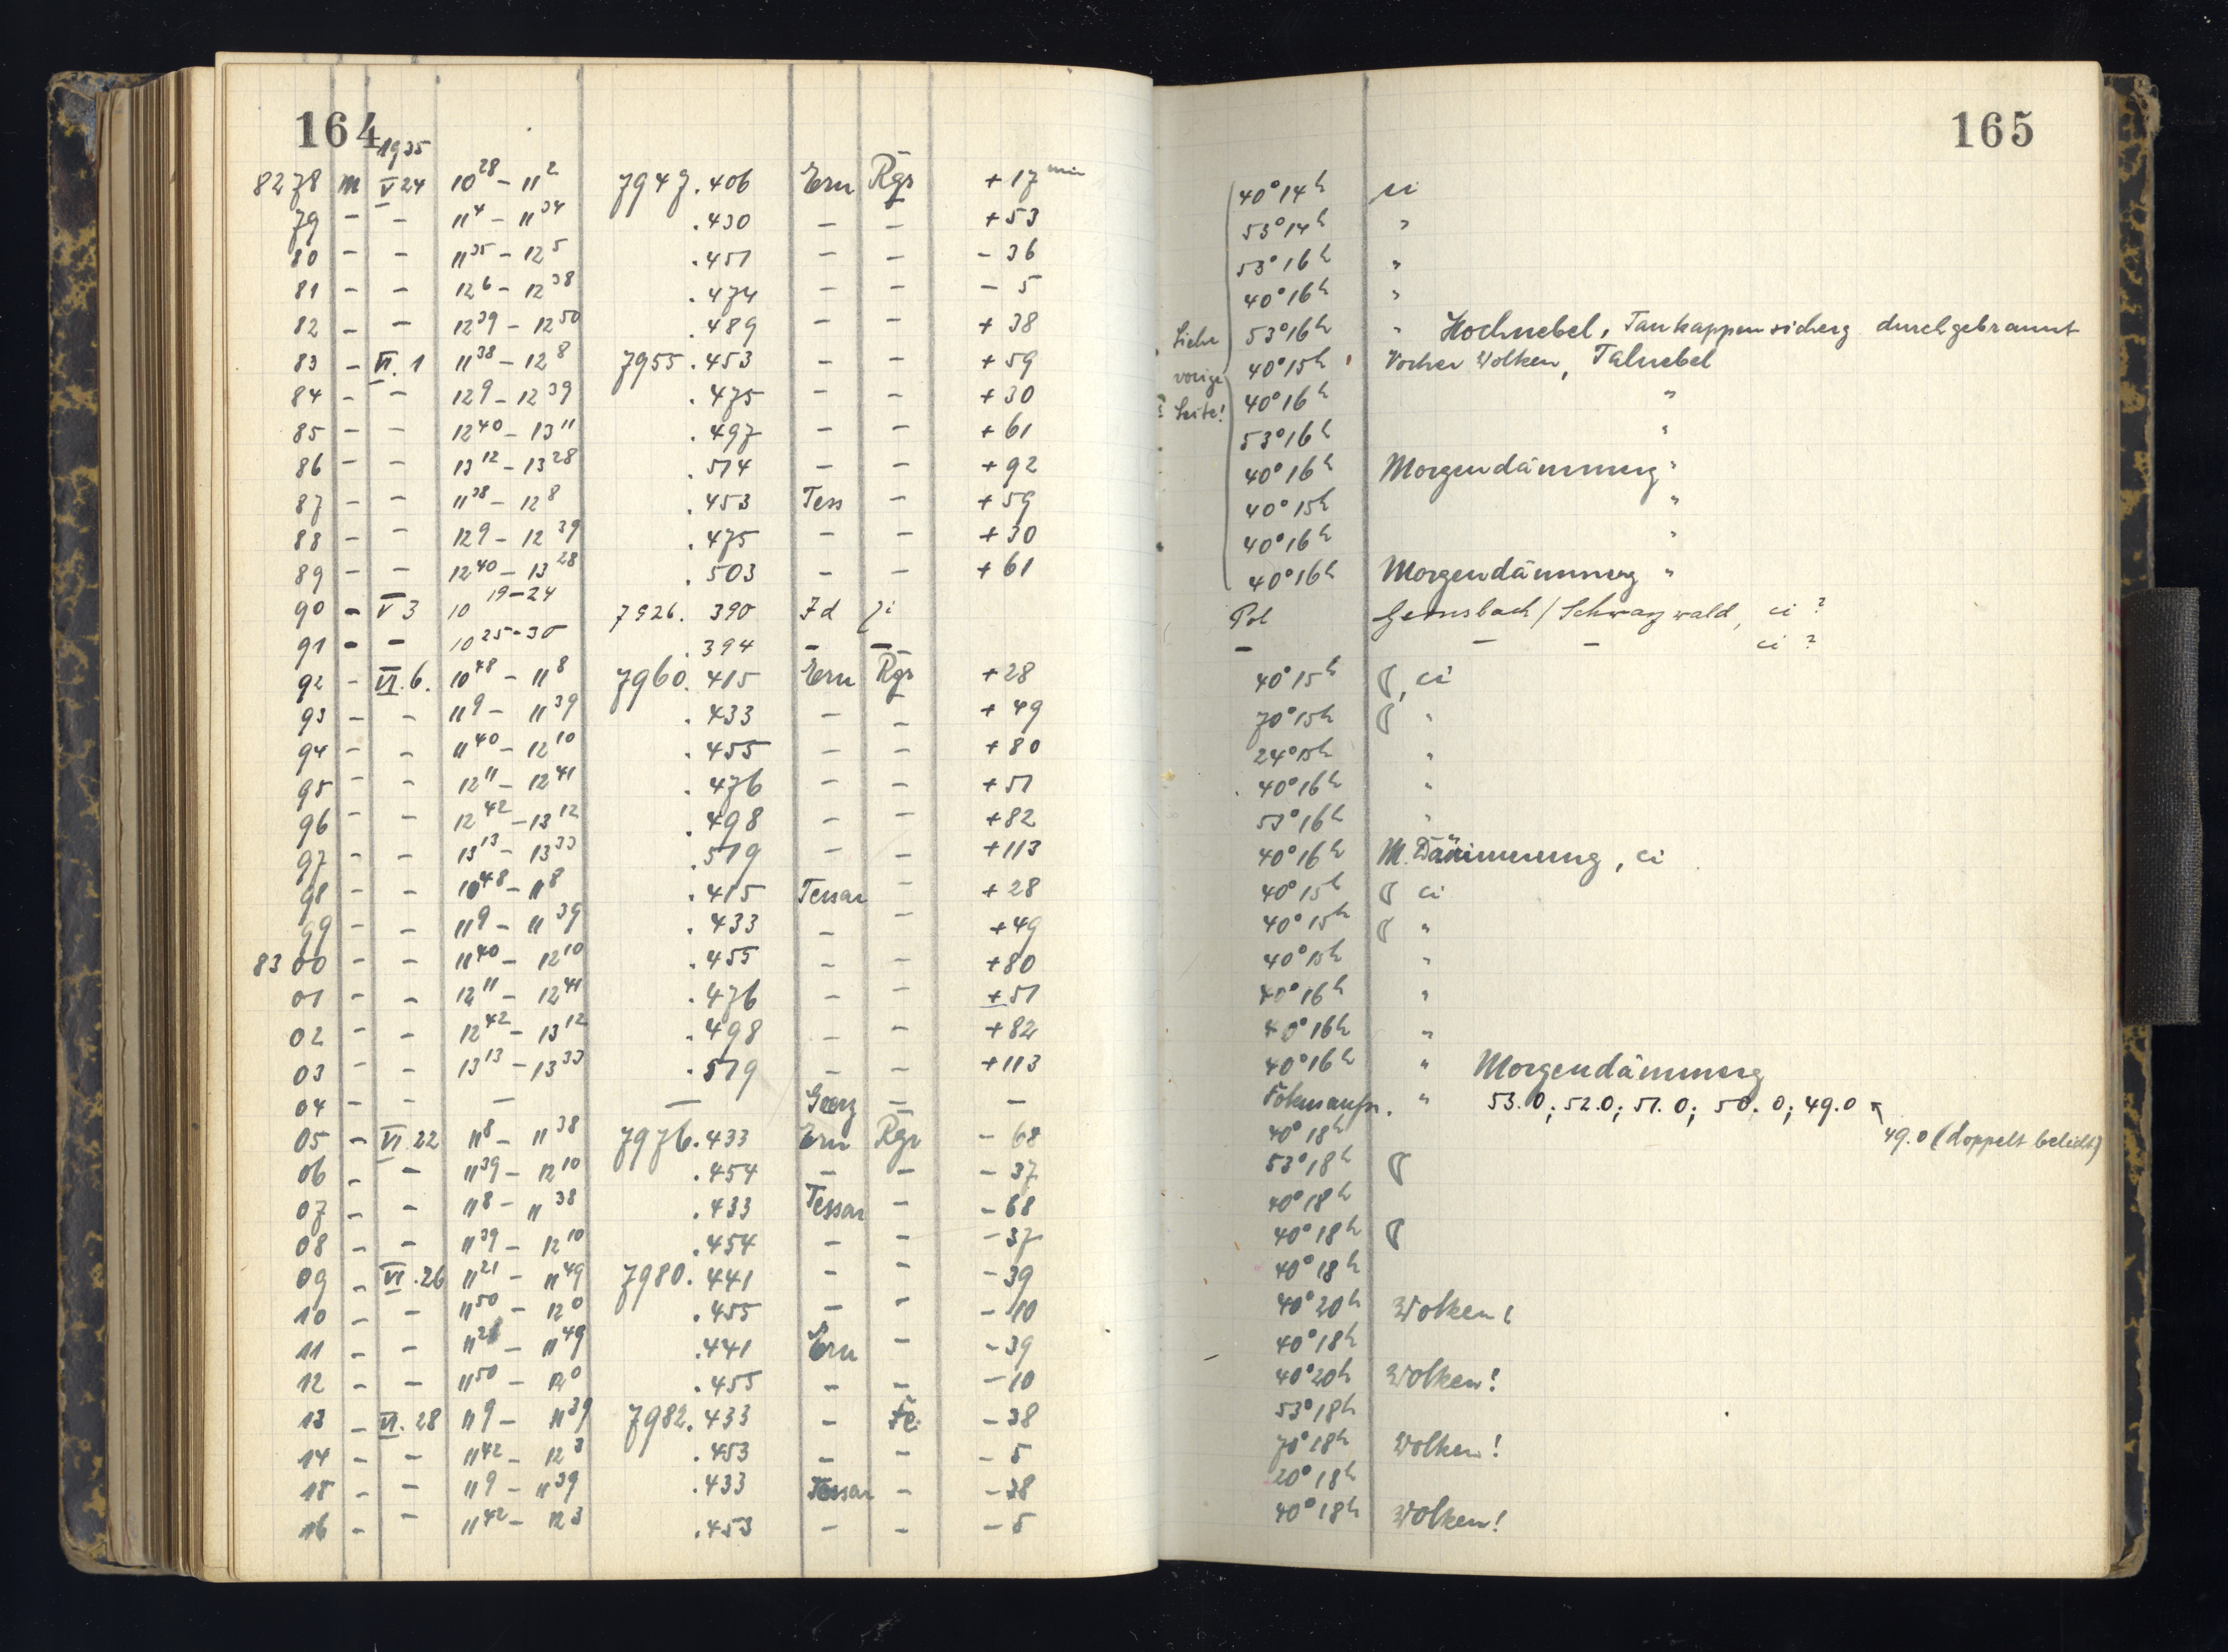 164
1935
8278 M V 24 10²⁸ – 11² 7947.406 Ern Rgr + 17 min
79 – – 11⁴ – 11³⁴ .430 – – + 53
80 – – 11³⁵ – 12⁵ .451 – – – 36
81 – – 12⁶ – 12³⁸ .474 – – – 5
82 – – 12³⁹ – 12⁵⁰ .489 – – + 38
83 – VI. 1 11³⁸ – 12⁸ 7955.453 – – + 59
84 – – 12⁹ – 12³⁹ .475 – – + 30
85 – – 12⁴⁰ – 13¹¹ .497 – – + 61
86 – – 13¹² – 13²⁸ .514 – – + 92
87 – – 11³⁸ – 12⁸ .453 Tess – + 59
88 – – 12⁹ – 12³⁹ .475 – – + 30
89 – – 12⁴⁰ – 13²⁸ .503 – – + 61
90 – V 3 10 ¹⁹⁻²⁴ 7926. 390 Zd ji
91 – – 10 ²⁵⁻³⁰ .394 – –
92 – VI. 6. 10⁴⁸ – 11⁸ 7960.415 Ern Rgr + 28
93 – – 11⁹ – 11³⁹ .433 – – + 49
94 – – 11⁴⁰ – 12¹⁰ .455 – – + 80
95 – – 12¹¹ – 12⁴¹ .476 – – + 51
96 – – 12⁴² – 13¹² .498 – – + 82
97 – – 13¹³ – 13³³ .519 – – + 113
98 – – 10⁴⁸ – 11⁸ .415 Tessar – + 28
99 – – 11⁹ – 11³⁹ .433 – – + 49
8300 – – 11⁴⁰ – 12¹⁰ .455 – – + 80
01 – – 12¹¹ – 12⁴¹ .476 – – + 51
02 – – 12⁴² – 13¹² .498 – – + 82
03 – – 13¹³ – 13³³ .519 – – + 113
04 – – – – – –
05 – VI. 22 11⁸ – 11³⁸ 7976.433 Ern Rgr – 68
06 – – 11³⁹ – 12¹⁰ .454 – – – 37
07 – – 11⁸ – 11³⁸ .433 Tessar – – 68
08 – – 11³⁹ – 12¹⁰ .454 – – – 37
09 – VI. 26 11²¹ – 11⁴⁹ 7980.441 – – – 39
10 – – 11⁵⁰ – 12⁰ .455 – – – 10
11 – – 11²¹ – 11⁴⁹ .441 Ern – – 39
12 – – 11⁵⁰ – 12⁰ .455 – – – 10
13 – VI. 28 11⁹ – 11³⁹ 7982.433 – Fe. – 38
14 – – 11⁴² – 12³ .453 – – – 5
15 – – 11⁹ – 11³⁹ .433 Tessar – – 38
16 – – 11⁴² – 12³ .453 – – – 5
165
40° 14h ci
53° 14h "
53° 16h "
40° 16h "
53° 16h " Hochnebel, Taukappensicherg durchgebrannt
Siehe vorige Seite!
40° 15h Vorher Wolken, Talnebel
40° 16h "
53° 16h "
40° 16h Morgendämmerg "
40° 15h "
40° 16h "
40° 16h Morgendämmerg "
Pol Gernsbach / Schwarzwald, ci ?
– – – ci ?
40° 15h ☾, ci
70° 15h ☾ "
24° 15h "
40° 16h "
53° 16h "
40° 16h M. Dämmerung, ci
40° 15h ☾ ci
40° 15h ☾ "
40° 15h "
40° 16h "
40° 16h "
40° 16h " Morgendämmerg
Fokusaufn. " 53.0; 52.0; 51.0; 50.0; 49.0
49.0 (doppelt belicht)
40° 18h
53° 18h ☾
40° 18h
40° 18h ☾
40° 18h
40° 20h Wolken!
40° 18h
40° 20h Wolken!
53° 18h
70° 18h Wolken!
20° 18h
40° 18h Wolken!